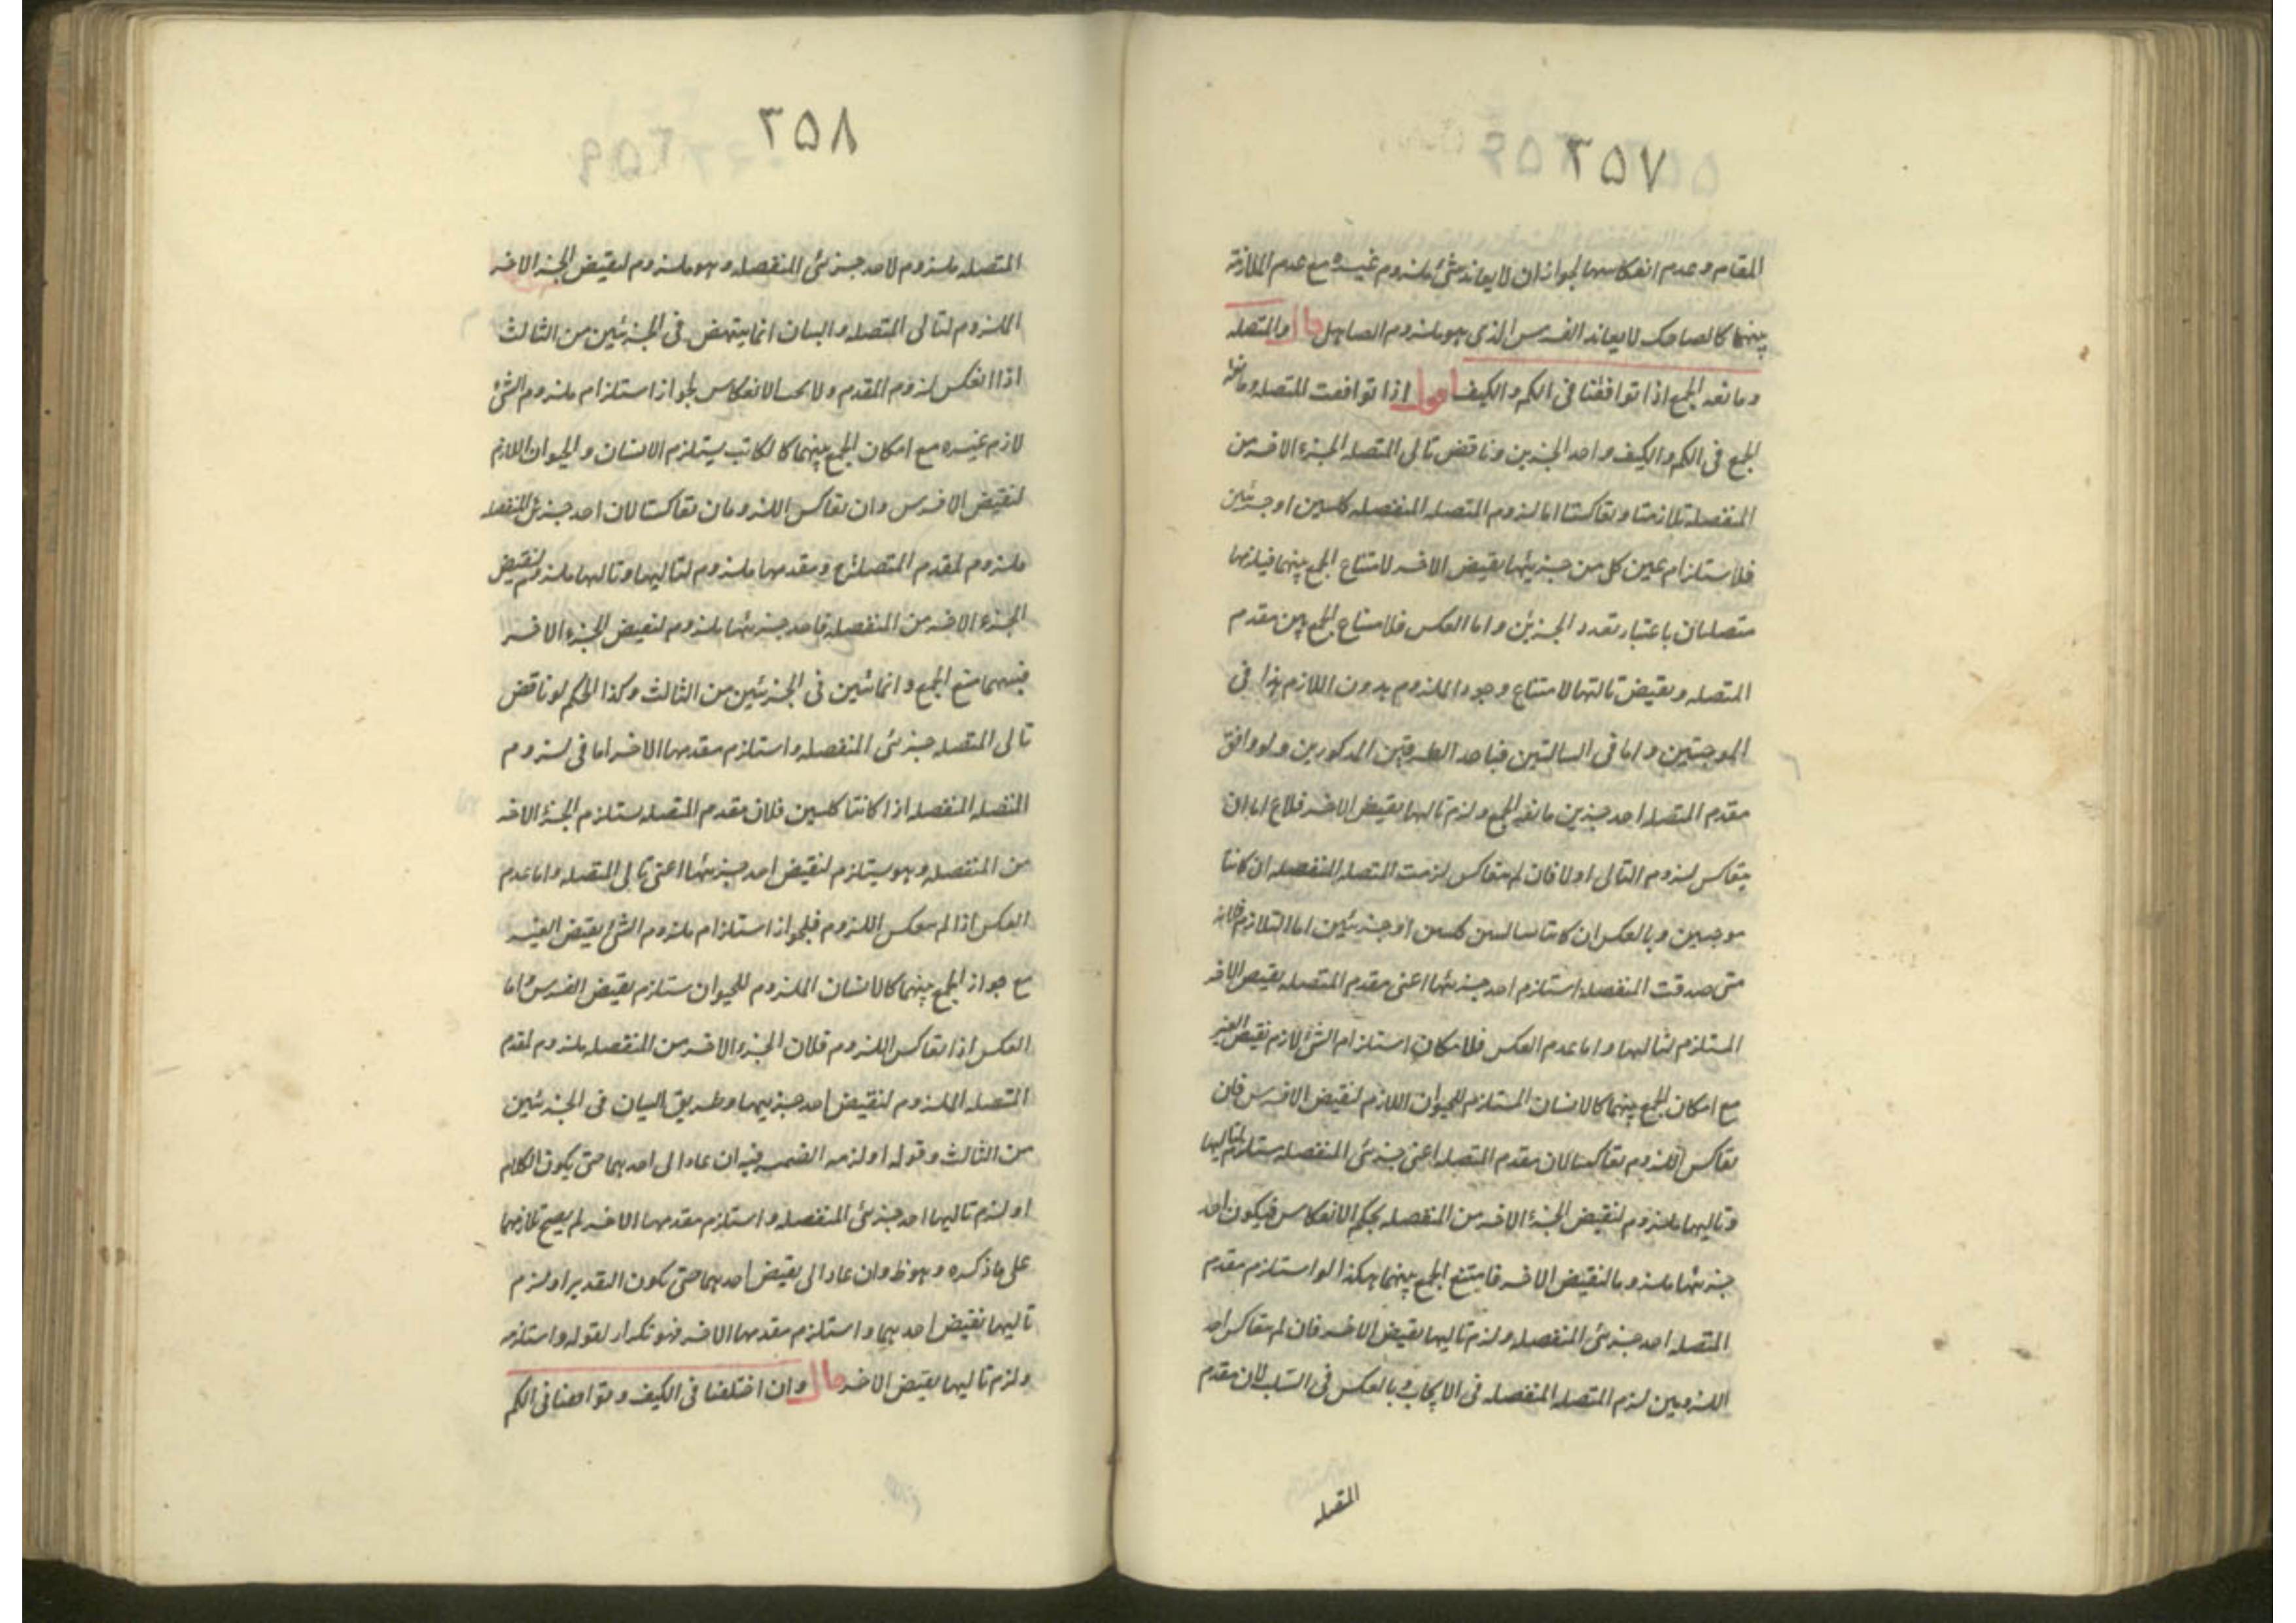 ٢٥٧
المقام وعدم انعكاسهما لجواز ان لا يعاند شئ ملزوم غيره مع عدم الملازمة
بينهما كالضاحك لا يعاند الفرس الذى هو ملزوم الصاهل قال والمتصله
ومانعه الجمع اذا توافقتا فى الكم والكيف اقول اذا توافقت المتصله ومانعة
الجمع فى الكم والكيف واحد الجزين وناقض تالى المتصله الجزء الاخر من
المنفصله تلازمتا وتعاكستا اما لزوم المتصله المنفصله كليتين او جزئيتين
فلاستلزام عين كل من جزئيها نقيض الاخر لامتناع الجمع بينهما فيلزمها
متصلتان باعتبار تعدد الجزئين واما العكس فلامتناع الجمع بين مقدم
المتصله ونقيض تاليها لامتناع وجود الملزوم بدون اللازم هذا فى
الموجبتين واما فى السالبتين فباحد الطريقين المذكورين ولو وافق
مقدم المتصله احد جزين مانعه الجمع ولزم تاليها نقيض الاخر فلاع اما ان
يتعاكس لزوم التالى اولا فان لم يتعاكس لزمت المتصله المنفصله ان كانتا
موجبتين وبالعكس ان كانتا سالبتين كليتين او جزئيتين اما التلازم فلانه
متى صدقت المنفصله استلزم احد جزئيها اعنى مقدم المتصله نقيض الاخر
المستلزم لتاليها واما عدم العكس فلامكان استلزام الشئ لازم نقيض الغير
مع امكان الجمع بينهما كالانسان المستلزم للحيوان اللازم لنقيض الافرس فان
تعاكس اللزوم تعاكستا لان مقدم المتصله اعنى جزئى المنفصله ستلزم لتاليها
وتاليها ملزوم لنقيض الجزء الاخر من المنفصله بحكم الانعكاس فيكون احد
جزئيها ملزوما لنقيض الاخر فامتنع الجمع بينهما هكذا لو استلزم مقدم
المتصله احد جزئى المنفصله ولزم تاليها نقيض الاخر فان لم يتعاكس احد
اللزومين لزم المتصله المنفصله فى الايجاب وبالعكس فى السلب لان مقدم
المتصله
٢٥٨
المتصله ملزوم لاحد جزئى المنفصله وهو ملزوم لنقيض الجزء الاخر
الملزوم لتالى المتصله والبيان انما ينتهض فى الجزئيتين من الثالث
اذا انعكس لزوم المقدم ولا يجب الانعكاس لجواز استلزام ملزوم الشئ
لازم غيره مع امكان الجمع بينهما كالكاتب يستلزم الانسان والحيوان اللازم
لنقيض الافرس وان تعاكس اللزومان تعاكستا لان احد جزئى المنفصله
ملزوم لمقدم المتصله ومقدمها ملزوم لتاليها وتاليها ملزوم لنقيض
الجزء الاخر من المنفصله فاحد جزئيها ملزوم لنقيض الجزء الاخر
فبينهما منع الجمع وانما تبين فى الجزئيتين من الثالث وكذا الحكم لو ناقض
تالى المتصله جزئى المنفصله واستلزم مقدمها الاخر اما فى لزوم
المتصله المنفصله اذا كانتا كليتين فلان مقدم المتصله ستلزم الجزء الاخر
من المنفصله وهو يستلزم لنقيض احد جزئيها اعنى تالى المتصله واما عدم
العكس اذا لم ينعكس اللزوم فلجواز استلزام ملزوم الشئ نقيض الغير
مع جواز الجمع بينهما كالانسان الملزوم للحيوان ستلزم نقيض الفرس واما
العكس اذا تعاكس اللزوم فلان الجزء الاخر من المنفصله ملزوم لمقدم
المتصله الملزوم لنقيض احد جزئيها وطريق البيان فى الجزئيتين
من الثالث وقوله او لزمه الضمير فيه ان عاد الى احدهما حتى يكون الكلام
او لزم تاليها احد جزئى المنفصله واستلزم مقدمها الاخر لم يصح تلازمهما
على ما ذكره وهو ظ وان عاد الى نقيض احدهما حتى يكون التقدير او لزم
تاليها نقيض احدهما واستلزم مقدمها الاخر فهو تكرار لقوله واستلزمه
ولزم تاليها نقيض الاخر قال وان اختلفتا فى الكيف وتوافقتا فى الكم